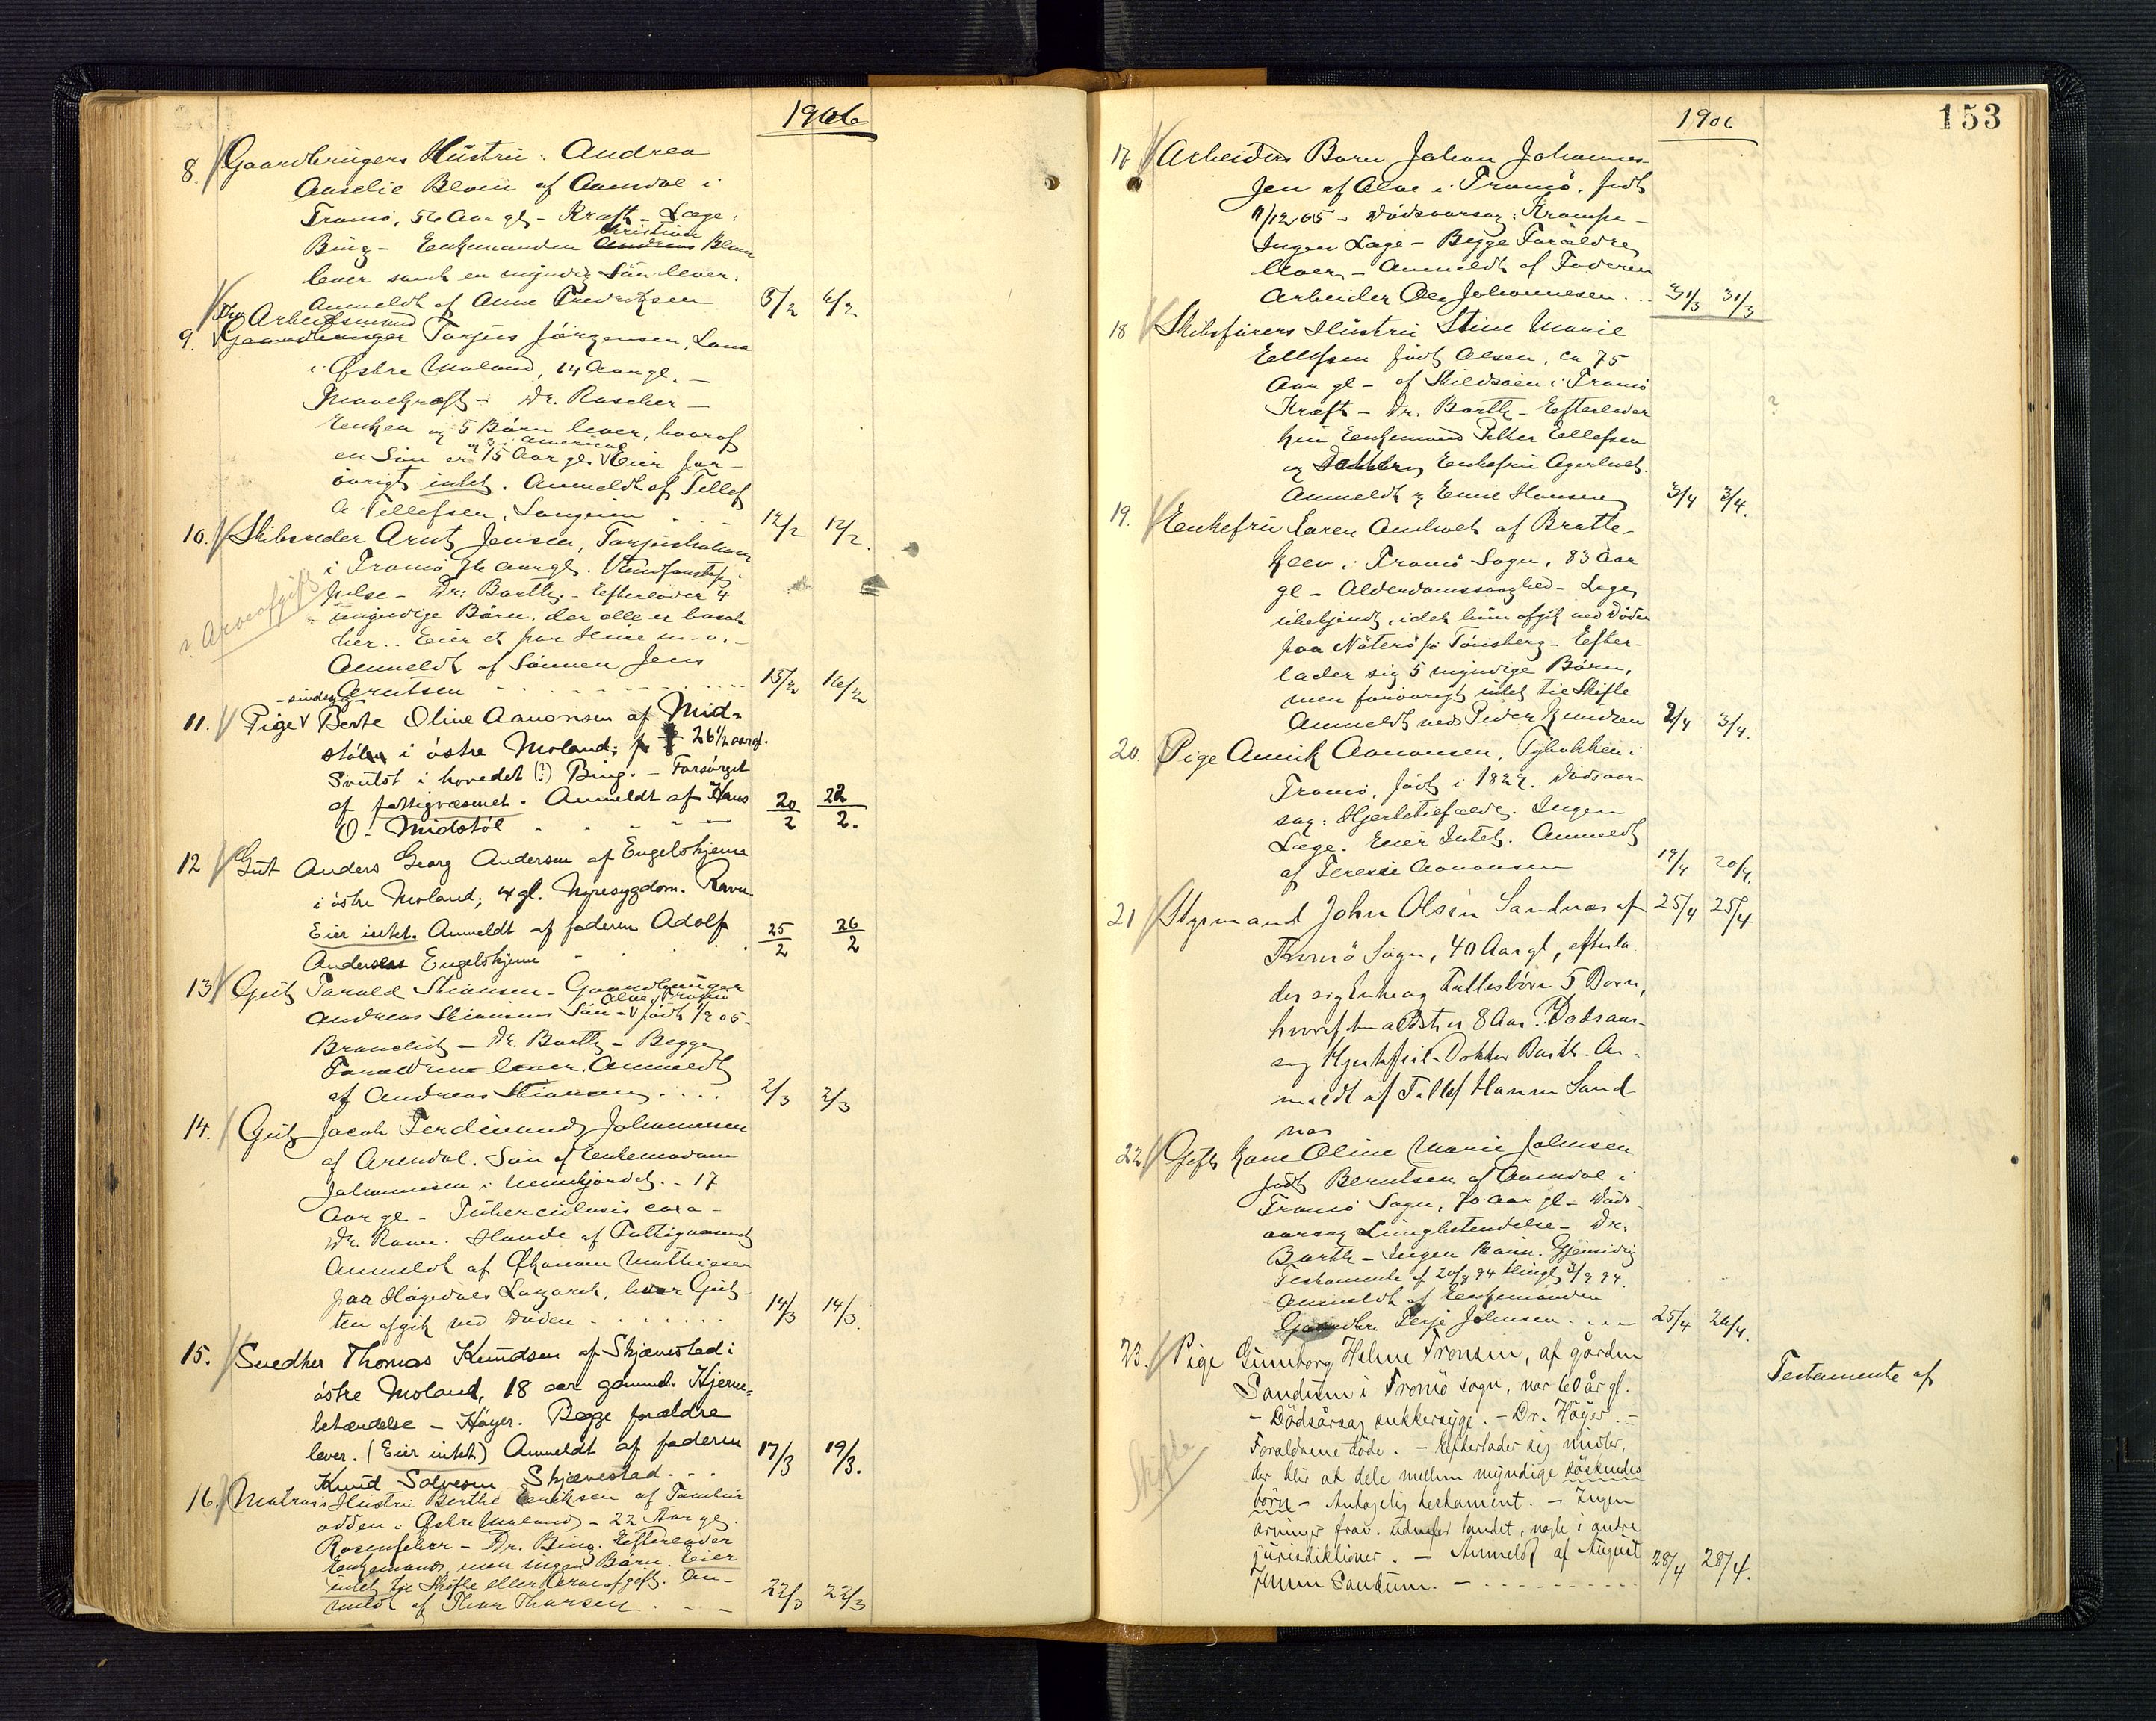 1906
8. Gaardbrugers Hüstrü: Andrea
Amelie Blom af Aamdal i
Tromö, 56 Aar gl - Kræft - Læge:
Bing - Enkemanden Christian Blom
lever samt en myndig Sön lever.
Anmeldt af Anne Fredriksen 5/2 6/2
9. Arbeidsmand
Gaardbruger Torjus Jörgensen, Lona
i Østre Moland, 64 Aar gl. -
Mavekræft - Dr. Rascher -
Enken og 5 Börn lever, hvoraf
og 3 i America
en Sön er 15 Aar gl. Eier for-
övrigt intet. Anmeldt af Tellef
A. Tellefsen, Longum 12/2 12/2.
10. Skibsreder Arnt Jensen, Torjusholmen
i Tromö 76 Aar gl.
Dr: Barth. - Efterlader 4
myndige Börn, der alle er bosat
her.. Eier et par Huse m.v. -
Anmeldt af Sönnen Jens
Arntsen 15/2 16/2
? Arveafgift
- sindsyg -
11. Pige Berte Oline Aanonsen af Mid-
stöl i östre Moland; 26 1/2 aar gl.
Svülst i hovedet (?) Bing. - Forsörget
af fattigvæsenet. Anmeldt af Hans
O. Midstöl 20/2 22/2.
12 Güt Anders Georg Andersen af Engelskjenn
i östre Moland; 4 gl. Nyresygdom. Ravn.
Eier intet. Anmeldt af faderen Adolf
Andersen Engelskjenn 25/2 26/2
13 Güt Tarald Stiansen - Gaardbrüger
Alve i Tromö
Andreas Stiansens Sön - födt 1/9 05 -
Bronchit - Dr. Barth - Begge
Forældrene lever. Anmeldt
af Andreas Stiansen .... 2/3 2/3
14. Güt Jacob Ferdinand Johannesen
af Arendal. Sön af Enkemadam
Johannesen i Münkjordet. - 17
Aar gl - Tüberculosis
Dr. Ravn. Hünde af Fattigvæsenet
Anmeldt af Økonom Mathiesen
paa Högedals Lazaret, hvor Güt-
ten afgik ved Döden ....... 14/3 14/3.
15. Snedker Thomas Knudsen af Skjævestad i
östre Moland, 18 aar gammel. Hjerne-
betændelse - Höyer. Begge forældre
lever. (Eier intet) Anmeldt af faderen
Knud Salvesen Skjævestad ... 17/3 19/3.
16. Matros's Hüstrü Berthe Eriksen af
odden i Østre Moland - 22 Aar gl.
Rosenfeber - Dr. Bing. Efterlader
Enkemand, men ingen Börn. Eier
intet til Skifte eller Arveafgift. An-
meldt af Thor Thorsen 22/3 22/3
153
1906
17 Arbeiders Barn Johan Johannes-
sen af Alve i Tromö, födt
11/12 05 - Dödsaarsag: Krampe -
Ingen Læge - Begge Forældre
lever - Anmeldt af Faderen
Arbeider Ole Johannesen .. 31/3 31/3
18 Skibsförers Hüstrü Stine Marie
Ellefsen födt Olsen, ca 75
Aar gl - af Skilsöien i Tromö
Kræft - Dr. Barth - Efterlader
kün Enkemand Petter Ellefsen
og Datter Enkefrü Agerholt.
Anmeldt af Emil Hansen 3/4 3/4.
?
19. Enkefrü Karen Amholt af Bratte-
klev i Tromö Sogn, 83 Aar
gl - Alderdomssvaghed - Læge
übekjendt, idet hün afgik ved Döden
paa Nöterö pr Tönsberg - Efter-
lader sig 5 myndige Börn,
men forövrigt intet til Skifte
Anmeldt ved Peder Knudsen 2/4 3/4.
20. Pige Annik Aanonsen, Tybakken i
Tromö, födt i 1829. Dödsaar-
sag: Hjertetilfælde. Ingen
Læge. Eier Intet. Anmeldt
af Terese Aanonsen 19/4 20/4.
21 Styrmand John Olsen Sandnæs af 25/4 25/4
Tromö Sogn, 40 Aar gl, efterla
der sig Enke og Fællesbörn 5 Börn,
hvoraf den ældste er 8 Aar. Dödsaar-
sag Hjertefeil. Doktor Barth. An-
meldt af Tellef Hansen Sand
næs
22. Gift Kone Oline Marie Johnsen
födt Berntsen af Aamdal i
Tromö Sogn, 70 Aar gl - Döds-
aarsag Lüngbetændelse - Dr.
Barth - Ingen Börn. Gjensidig
Testamente af 20/8 94 thingl. 3/9 94.
Anmeldt af Enkemanden
Gaardbr. Terje Johnsen .... 25/4 26/4.
23. Pige Gunnborg Helene Tronsen, af gården
Sandum i Tromö sogn, var 60 år gl.
- Dödsårsag sukkersyge. - Dr. Höyer. -
Forældrene döde. - Efterlader sig midler,
der blir at dele mellem myndige söskende
börn - Antagelig testament. - Ingen
arvinger frav. udenfor landet, nogle i andre
jurisdiktioner. - Anmeldt af August
Jensen Sandum. - .......... 28/4 28/4.
Skifte
Testamente af